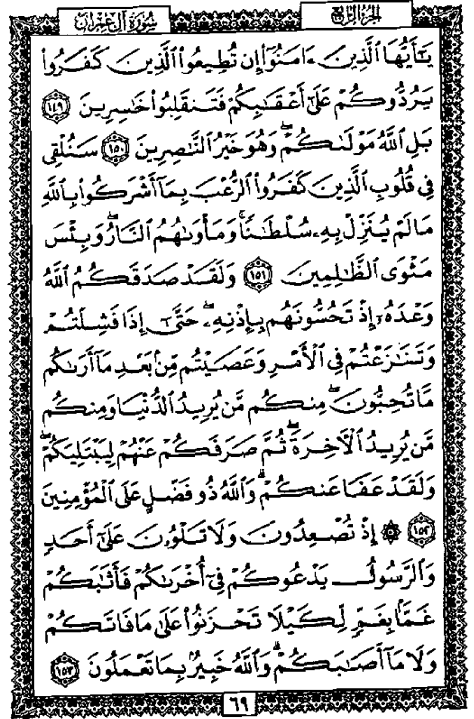 الجزء الرابع
سورة آل عمران
يَـٰٓأَيُّهَا ٱلَّذِينَ ءَامَنُوٓا۟ إِن تُطِيعُوا۟ ٱلَّذِينَ كَفَرُوا۟
يَرُدُّوكُمْ عَلَىٰٓ أَعْقَـٰبِكُمْ فَتَنقَلِبُوا۟ خَـٰسِرِينَ ١٤٩
بَلِ ٱللَّهُ مَوْلَىٰكُمْ ۖ وَهُوَ خَيْرُ ٱلنَّـٰصِرِينَ ١٥٠ سَنُلْقِى
فِى قُلُوبِ ٱلَّذِينَ كَفَرُوا۟ ٱلرُّعْبَ بِمَآ أَشْرَكُوا۟ بِٱللَّهِ
مَا لَمْ يُنَزِّلْ بِهِۦ سُلْطَـٰنًا ۖ وَمَأْوَىٰهُمُ ٱلنَّارُ ۚ وَبِئْسَ
مَثْوَى ٱلظَّـٰلِمِينَ ١٥١ وَلَقَدْ صَدَقَكُمُ ٱللَّهُ
وَعْدَهُۥٓ إِذْ تَحُسُّونَهُم بِإِذْنِهِۦ ۖ حَتَّىٰٓ إِذَا فَشِلْتُمْ
وَتَنَـٰزَعْتُمْ فِى ٱلْأَمْرِ وَعَصَيْتُم مِّنۢ بَعْدِ مَآ أَرَىٰكُم
مَّا تُحِبُّونَ ۚ مِنكُم مَّن يُرِيدُ ٱلدُّنْيَا وَمِنكُم
مَّن يُرِيدُ ٱلْـَٔاخِرَةَ ۚ ثُمَّ صَرَفَكُمْ عَنْهُمْ لِيَبْتَلِيَكُمْ ۖ
وَلَقَدْ عَفَا عَنكُمْ ۗ وَٱللَّهُ ذُو فَضْلٍ عَلَى ٱلْمُؤْمِنِينَ
١٥٢ ۞ إِذْ تُصْعِدُونَ وَلَا تَلْوُۥنَ عَلَىٰٓ أَحَدٍ
وَٱلرَّسُولُ يَدْعُوكُمْ فِىٓ أُخْرَىٰكُمْ فَأَثَـٰبَكُمْ
غَمًّۢا بِغَمٍّ لِّكَيْلَا تَحْزَنُوا۟ عَلَىٰ مَا فَاتَكُمْ
وَلَا مَآ أَصَـٰبَكُمْ ۗ وَٱللَّهُ خَبِيرٌۢ بِمَا تَعْمَلُونَ ١٥٣
٦٩